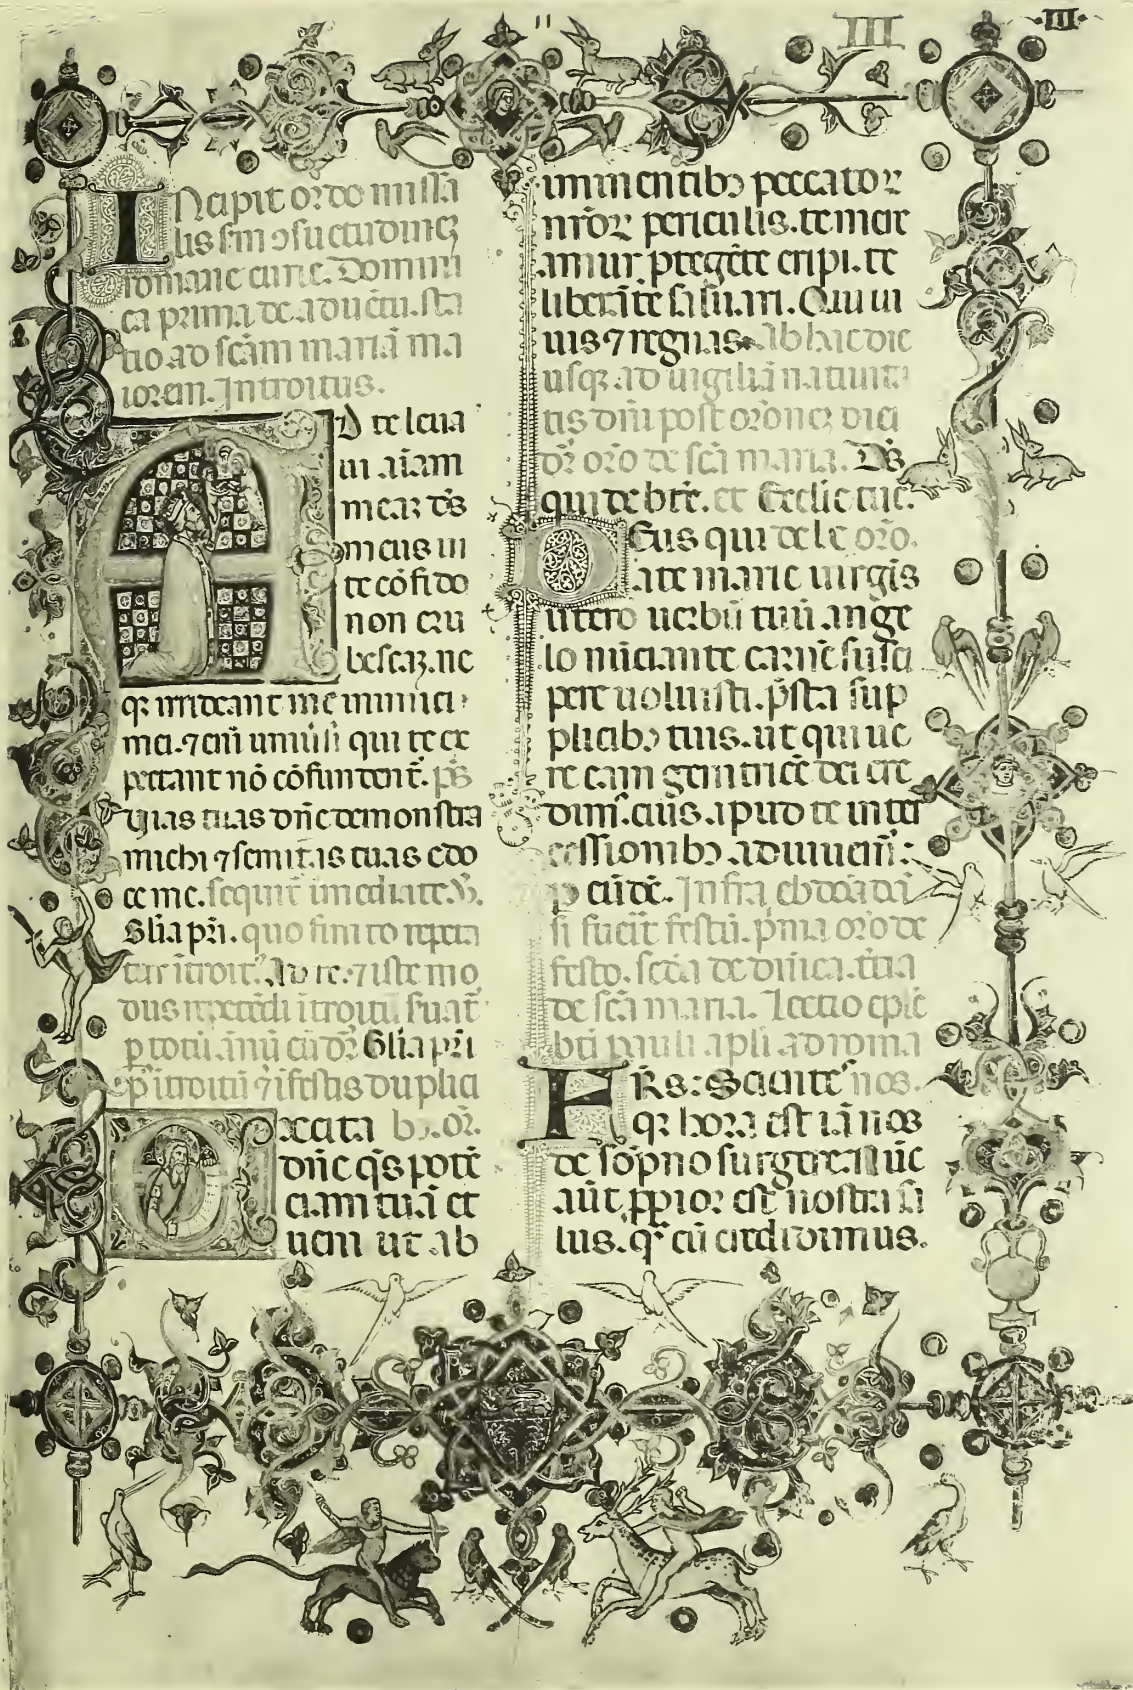 III
·III·
INcipit ordo missa
lis sm ɔsuetudinez
romane curie. Domini
ca prima de aduētu. sta
tio ad scām mariā ma
iorem. Introitus.
AD te leua
ui aīam
meaz ds
meus in
te cōfido
non eru
bescaz. ne
qz irrideant me inimici
mei. ⁊ eni uniūsi qui te ex
pectant nō cōfundent̄. ps̄
Uias tuas dn̄e demonstra
michi ⁊ semitas tuas edo
ce me. sequit̄ imediate. V̄.
Glīa pr̄i. quo finito repeta
tur ītroit᷒. Ad te. ⁊ iste mo
dus repetēdi ītroitū suat̄
p totū ānū cū dr̄ Glīa pr̄i
p᷒ ītroitū ⁊ ī festis duplici
EXcita
dn̄e qs̄ potē
ciam tuā et
ueni ut ab
imminentibꝫ peccatoꝝ
nr̄oꝝ periculis. te mere
amur ptegēte eripi. te
liberāte saluari. Qui ui
uis ⁊ regnas. Ab hac die
usqz ad uigiliā natiuita
tis dn̄i post orōnez diei
dr̄ oro de scā maria. Ds̄
qui de btē. et Ecclie tue.
DEus qui de oro.
ate marie uirgis
utero uerbū tuū ange
lo nūciante carnē susci
pere uoluisti. psta sup
plicibꝫ tuis. ut qui ue
re eam genitricē dei cre
dim᷒. eius apud te inter
cessionibꝫ adiuuem̄:
p eūdē. Infra ebdōadā
si fueit̄ festū. pma oro de
festo. scda de dnīca. tcia
de scā maria. Lectio eple
bti pauli apli ad roma
FRS: Scientes nos.
qz hora est iā nos
de sōpno surgere. Nūc
aūt ppior est nostra sa
lus. qz cū credidimus.